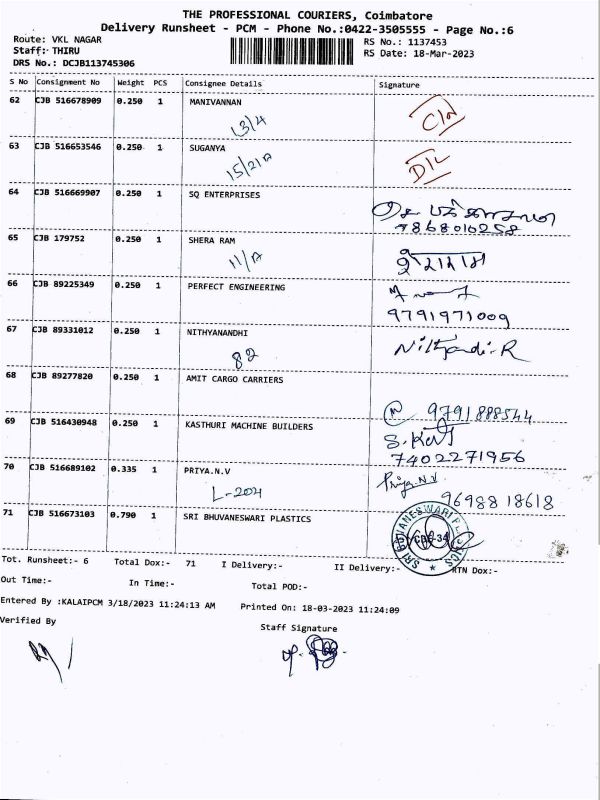 THE PROFESSIONAL COURIERS, Coimbatore
Delivery Runsheet - PCM - Phone No.:0422-3505555 - Page No.:6
Route: VKL NAGAR
RS No.: 1137453
Staff: THIRU
RS Date: 18-Mar-2023
DRS No.: DCJB113745306
S No Consignment No Weight PCS Consignee Details Signature
62 CJB 516678909 0.250 1 MANIVANNAN
13/4
63 CJB 516653546 0.250 1 SUGANYA
D/L
15/21A
64 CJB 516669907 0.250 1 SQ ENTERPRISES
9868010258
65 CJB 179752 0.250 1 SHERA RAM
11/A
66 CJB 89225349 0.250 1 PERFECT ENGINEERING
9791971009
67 CJB 89331012 0.250 1 NITHYANANDHI
82
68 CJB 89277820 0.250 1 AMIT CARGO CARRIERS
9791888544
69 CJB 516430948 0.250 1 KASTHURI MACHINE BUILDERS
7402271956
70 CJB 516689102 0.335 1 PRIYA.N.V
Priya.N.V
L-204
9698818618
71 CJB 516673103 0.790 1 SRI BHUVANESWARI PLASTICS
SRI BHUVANESWARI PLASTICS
CBE-34
Tot. Runsheet:- 6 Total Dox:- 71 I Delivery:- II Delivery:- RTN Dox:-
Out Time:- In Time:- Total POD:-
Entered By :KALAIPCM 3/18/2023 11:24:13 AM Printed On: 18-03-2023 11:24:09
Verified By
Staff Signature